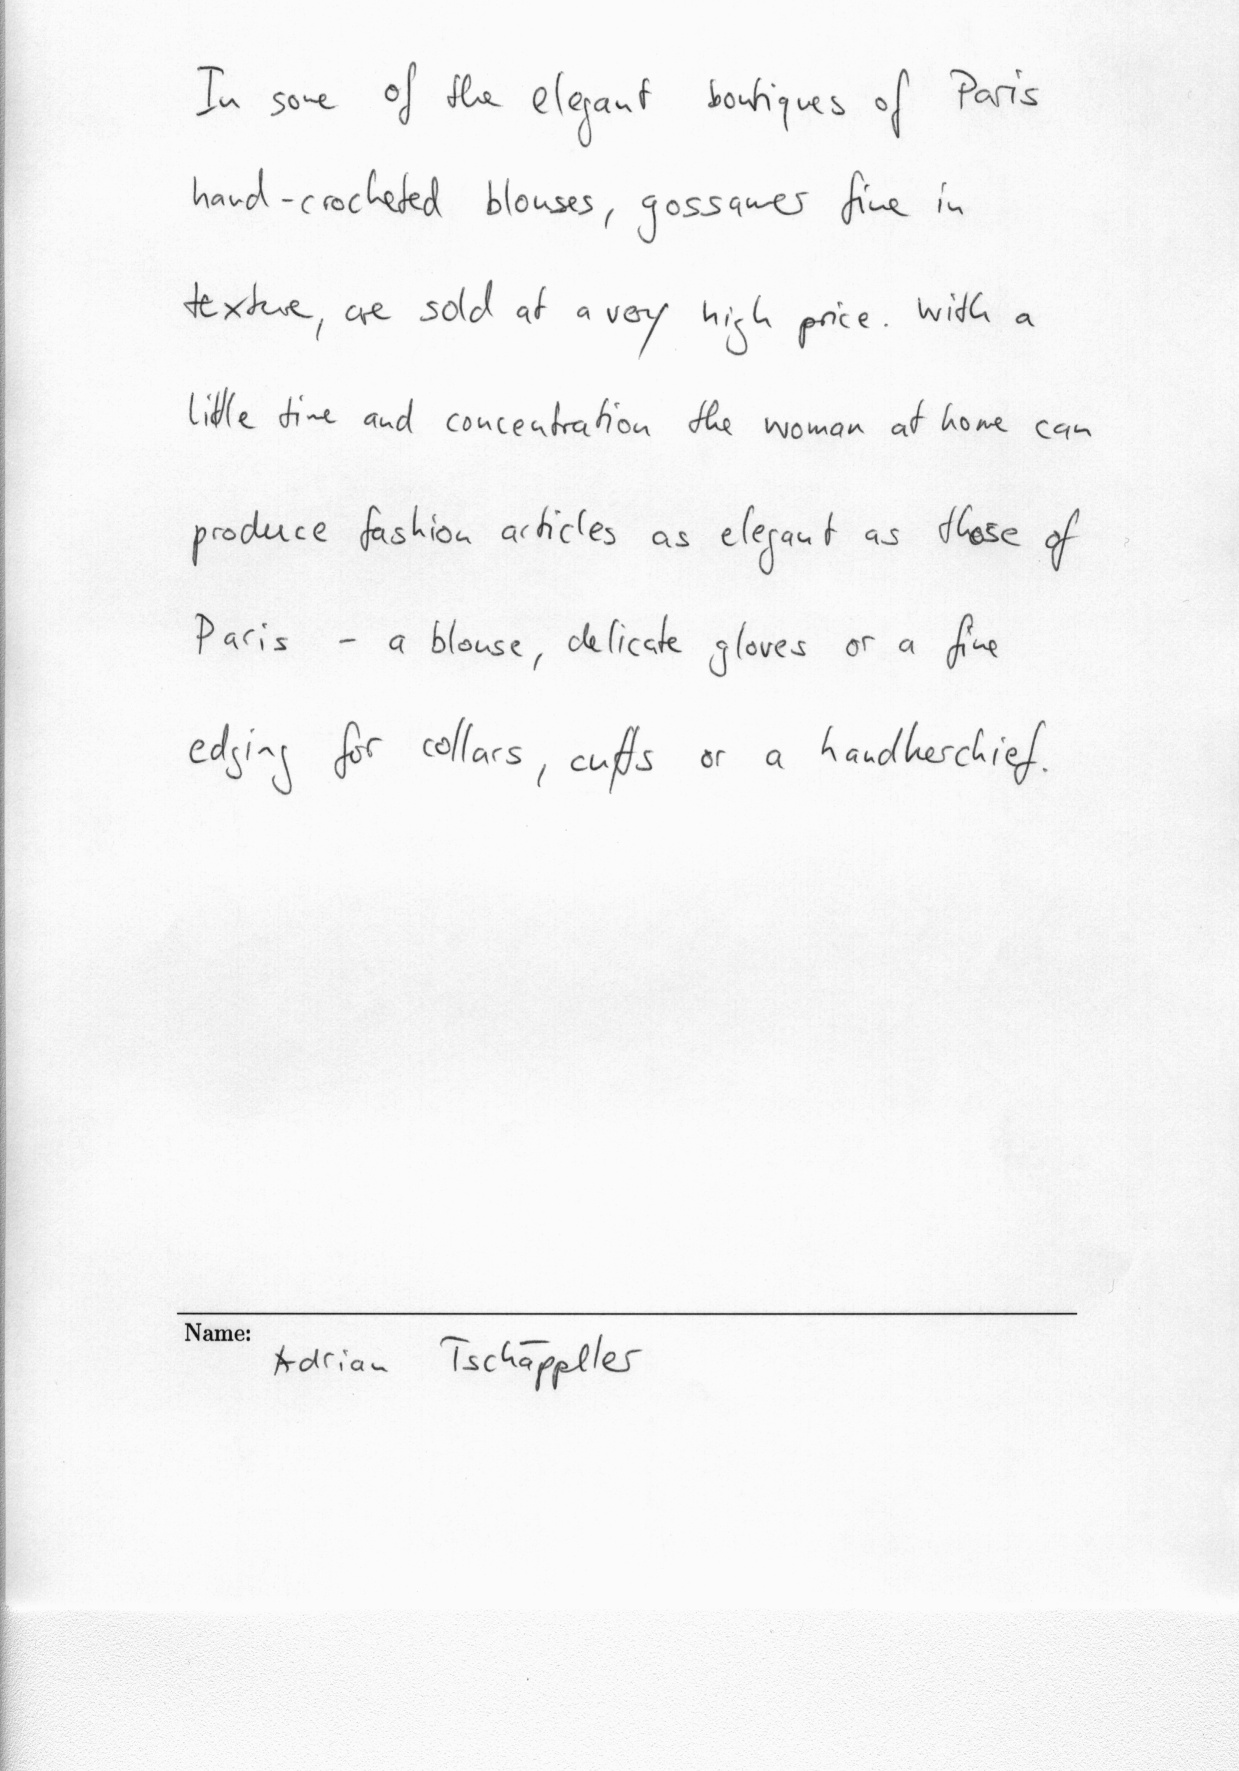 In some of the elegant boutiques of Paris
hand-crocheted blouses, gossamer fine in
texture, are sold at a very high price. With a
little time and concentration the woman at home can
produce fashion articles as elegant as those of
Paris - a blouse, delicate gloves or a fine
edging for collars, cuffs or a handkerchief.
Name:
Adrian Tschäppller